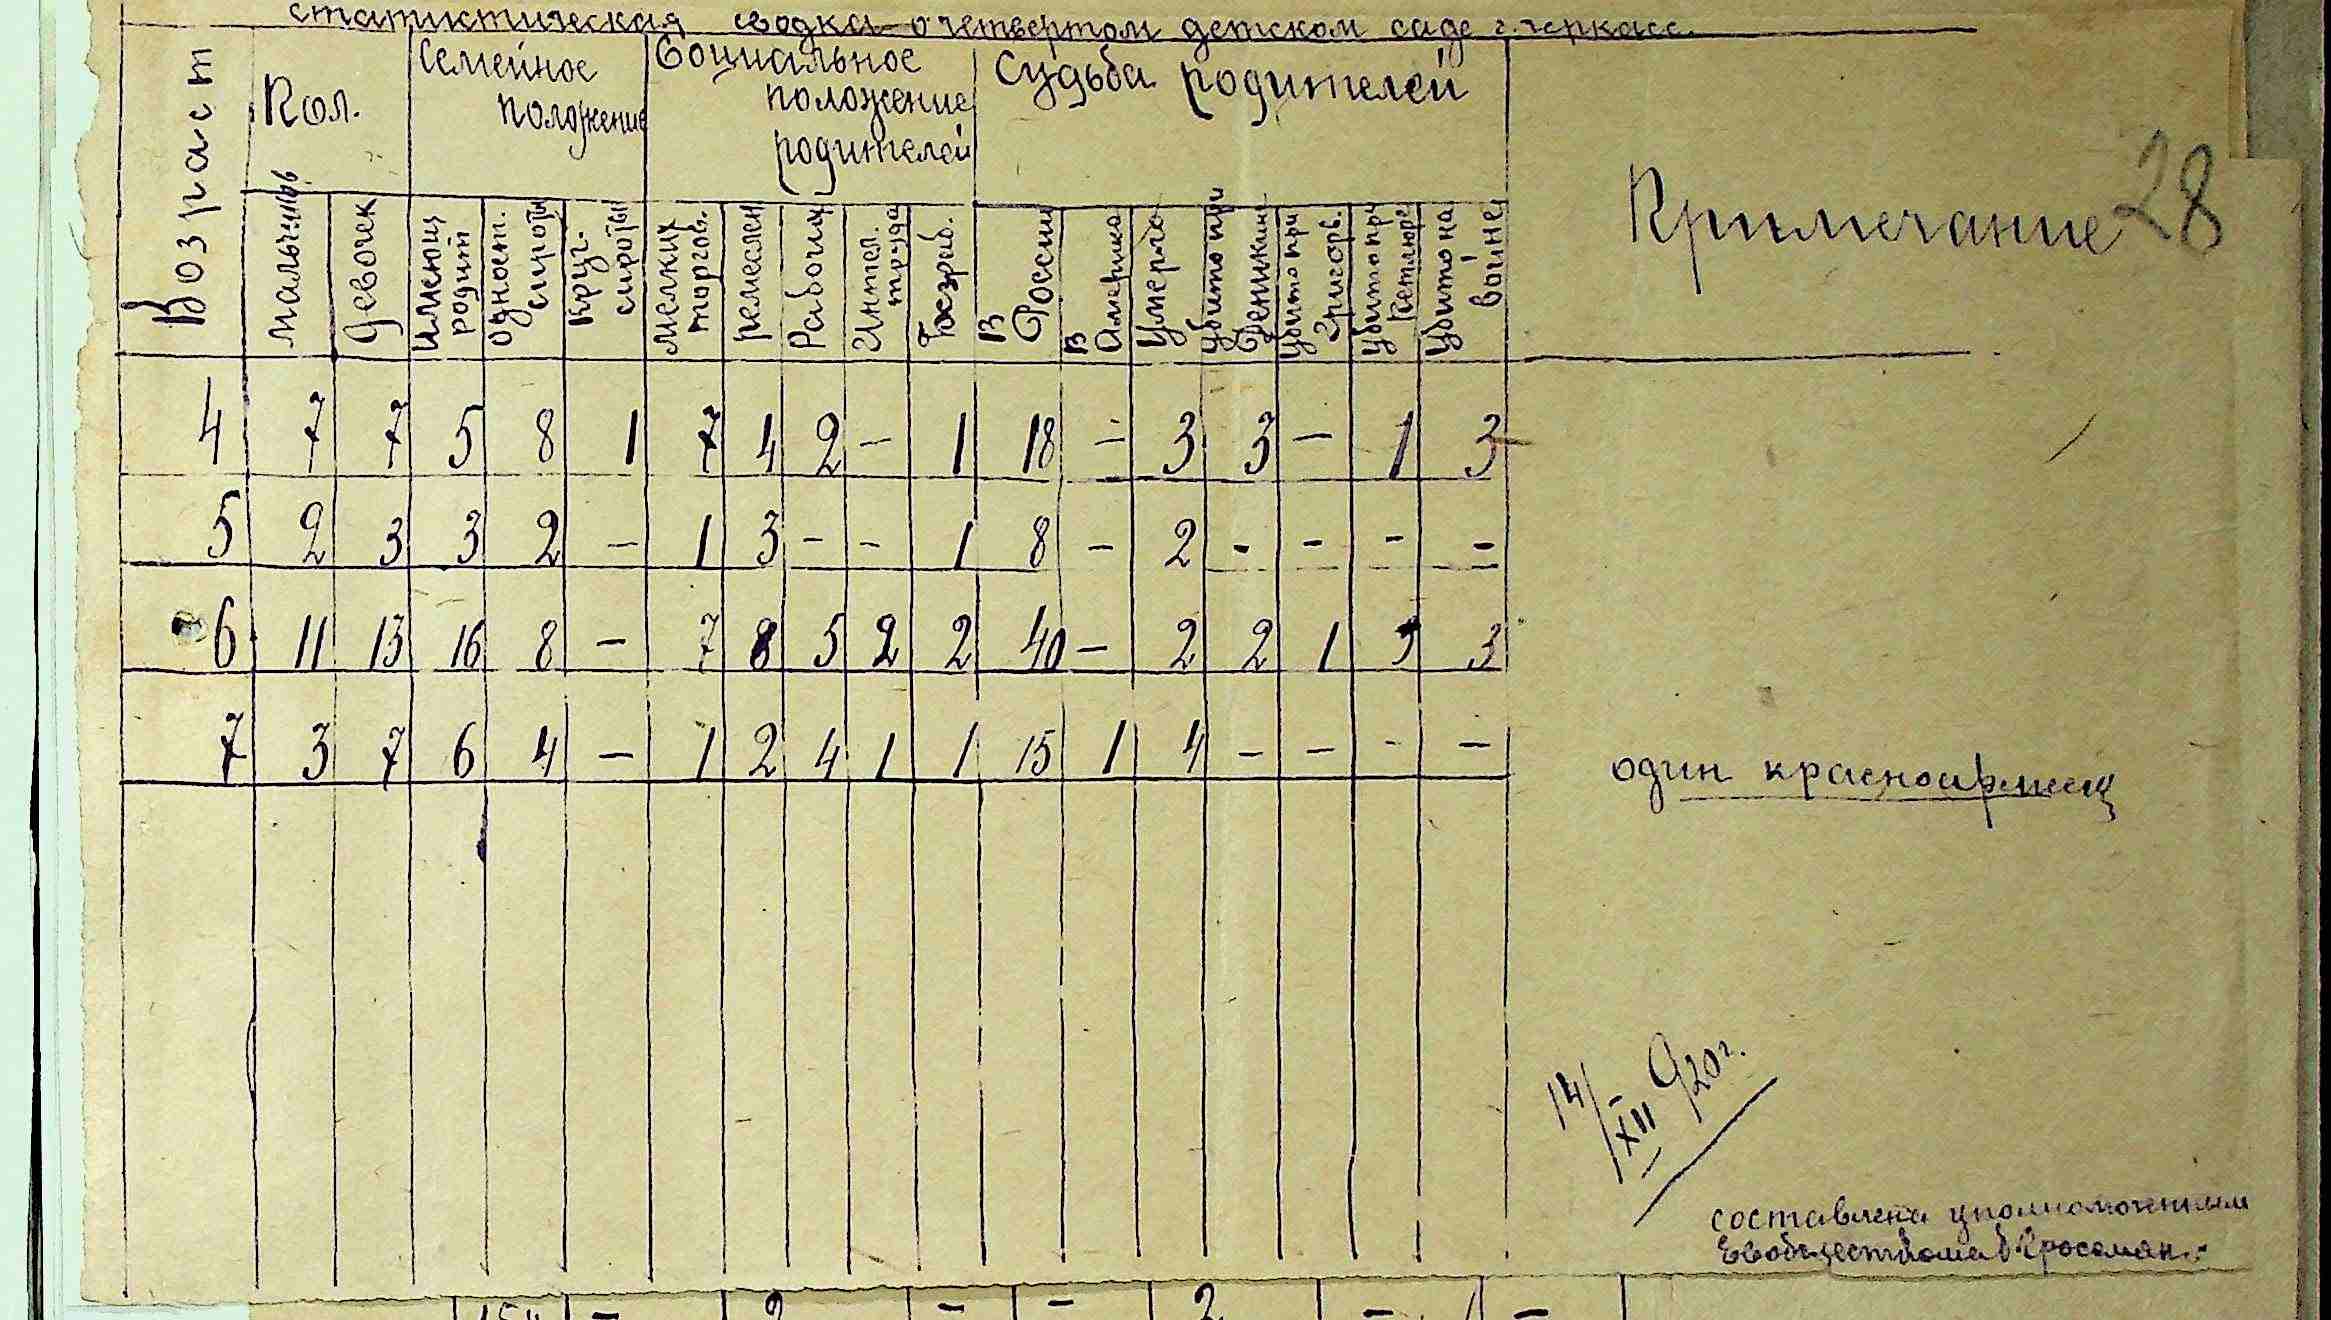 статистическая сводка о четвертом детском саде г. Черкасс.
Возраст
Кол.
Семейное положение
Социальное положение родителей
Судьба родителей
Примечание
28
мальчиков
девочек
Имеющ. родит.
Одност. сироты
Кругл. сироты
Мелких торгов.
Ремеслен
Рабочих
Интел. труда
Безраб.
В России
В Америке
Умерло
Убито при Деникине
Убито при Григорв.
Убито при Петлюре
Убито на войне
4 7 7 5 8 1 7 4 2 – 1 18 – 3 3 – 1 3
5 2 3 3 2 – 1 3 – – 1 8 – 2 - - - -
6 11 13 16 8 – 7 8 5 2 2 40 – 2 2 1 3
7 3 7 6 4 – 1 2 4 1 1 15 1 4 – – - –
один красноармеец
14/XII 920 г.
составлена уполномоченным
– 2 – – 2 – –